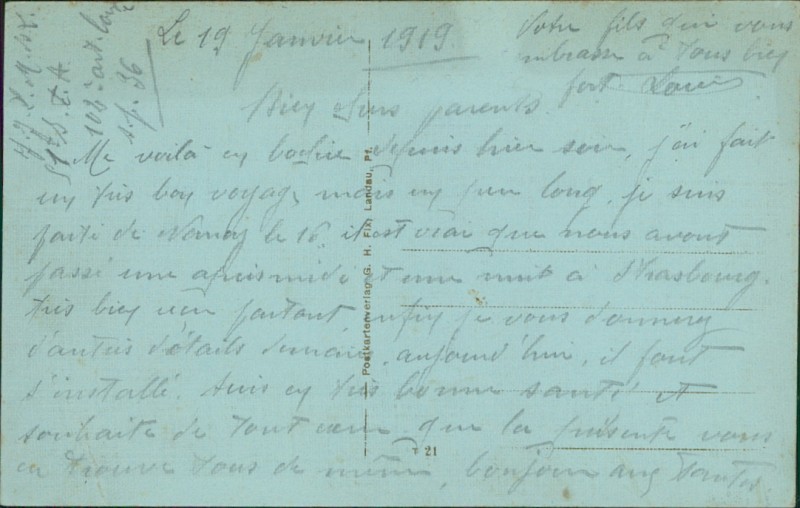 Le 19 Janvier 1919.
Bien chers parents
Me voilà en depuis hier soir, j'ai fait
un très bon voyage, mais un peu long, je suis
parti de Nancy le 16. il est vrai que nous avons
passé une après midi et une nuit à Strasbourg.
très bien partout enfin je vous donnerez
d'autres détails demain, aujourd'hui, il faut
s'installé. suis en très bonne santé et
souhaite de tout cœur que la présente vous
en trouve tous de même, bonjour aux tantes
Votre fils qui vous
embrasse à tous bien
fort Louis
108e art. lourde
s.p. 96
Postkartenverlag G. H. Fix, Landau, Pf.
21